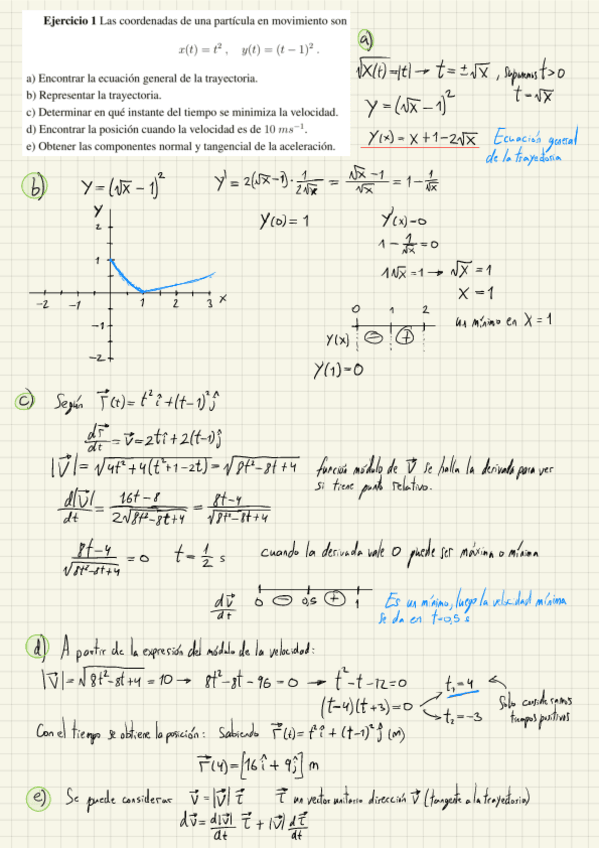 Ejercicio 1 Las coordenadas de una partícula en movimiento son
x(t) = t² , y(t) = (t − 1)² .
a) Encontrar la ecuación general de la trayectoria.
b) Representar la trayectoria.
c) Determinar en qué instante del tiempo se minimiza la velocidad.
d) Encontrar la posición cuando la velocidad es de 10 ms⁻¹.
e) Obtener las componentes normal y tangencial de la aceleración.
a)
√X(t) = |t| → t = ±√x , Suponemos t>0
t = √x
Y = (√x − 1)²
Y(x) = x + 1 − 2√x Ecuación general
de la trayectoria
b) Y = (√x − 1)² Y' = 2(√x − 1) · 1/(2√x) = (√x − 1)/√x = 1 − 1/√x
Y(0) = 1 Y'(x) = 0
1 − 1/√x = 0
1√x = 1 → √x = 1
x = 1
Y
2
1
-2 -1 1 2 3 x
-1
-2
0 1 2
Y(x) ⊖ ⊕
un mínimo en X = 1
Y(1) = 0
c) Según r⃗(t) = t² î + (t−1)² ĵ
dr⃗/dt = v⃗ = 2t î + 2(t−1) ĵ
|v⃗| = √(4t² + 4(t² + 1 − 2t)) = √(8t² − 8t + 4) función módulo de v⃗ se halla la derivada para ver
si tiene punto relativo.
d|v⃗|/dt = (16t − 8)/(2√(8t² − 8t + 4)) = (8t − 4)/√(8t² − 8t + 4)
(8t − 4)/√(8t² − 8t + 4) = 0 t = 1/2 s cuando la derivada vale 0 puede ser máxima o mínima
dv⃗/dt 0 ⊖ 0,5 ⊕ 1 Es un mínimo, luego la velocidad mínima
se da en t=0,5 s
d) A partir de la expresión del módulo de la velocidad:
|v⃗| = √(8t² − 8t + 4) = 10 → 8t² − 8t − 96 = 0 → t² − t − 12 = 0
(t−4)(t+3) = 0
t₁ = 4
t₂ = −3
Solo consideramos
tiempos positivos
Con el tiempo se obtiene la posición: Sabiendo r⃗(t) = t² î + (t−1)² ĵ (m)
r⃗(4) = [16 î + 9 ĵ] m
e) Se puede considerar v⃗ = |v⃗| τ⃗ τ⃗ un vector unitario dirección v⃗ (tangente a la trayectoria)
dv⃗ = d|v⃗|/dt τ⃗ + |v⃗| dτ⃗/dt